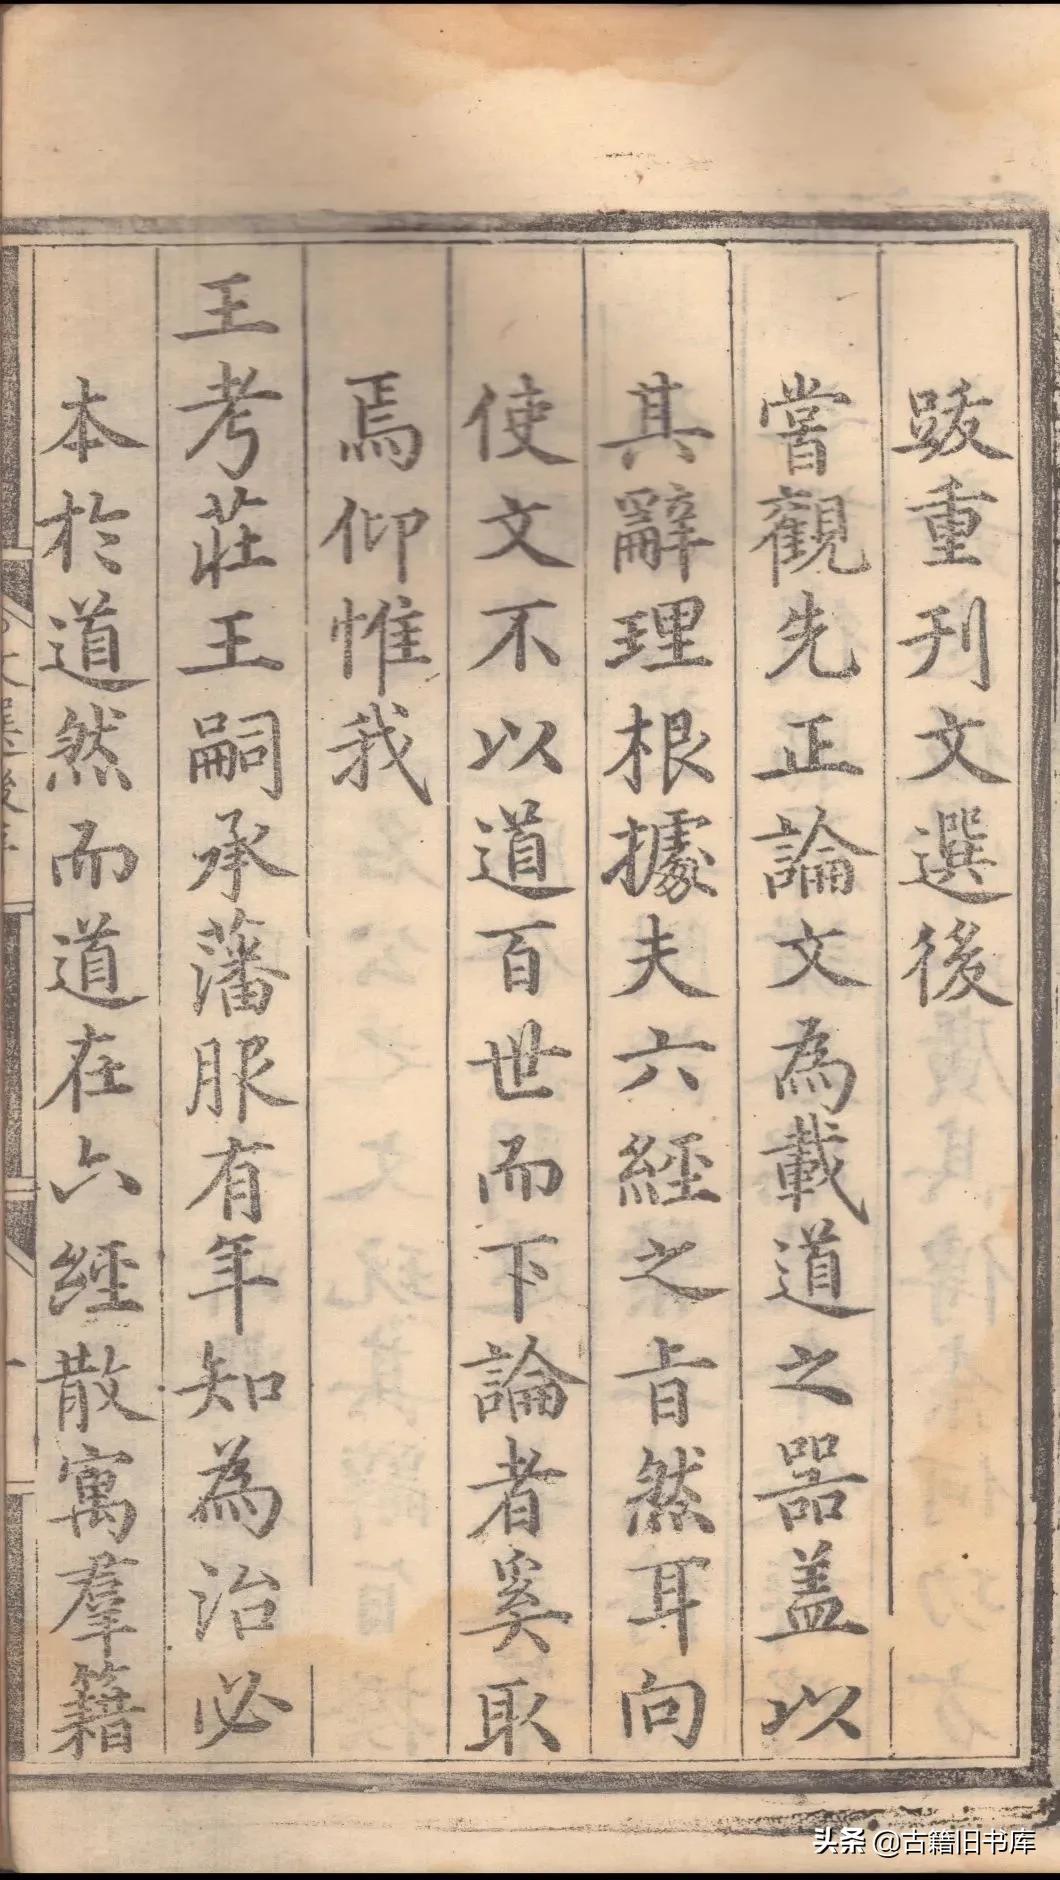 跋重刊文選後
嘗觀先正論文為載道之器盖以
其辭理根據夫六經之旨然耳向
使文不以道百世而下論者奚取
焉仰惟我
王考莊王嗣承藩服有年知為治必
本於道然而道在六經散寓羣籍
头条 @古籍旧书库